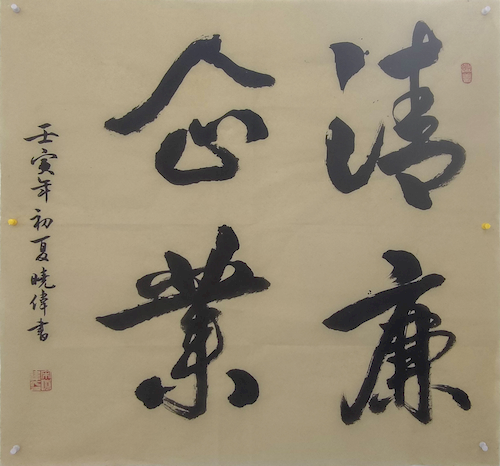 清廉
企業
壬寅年初夏曉偉書